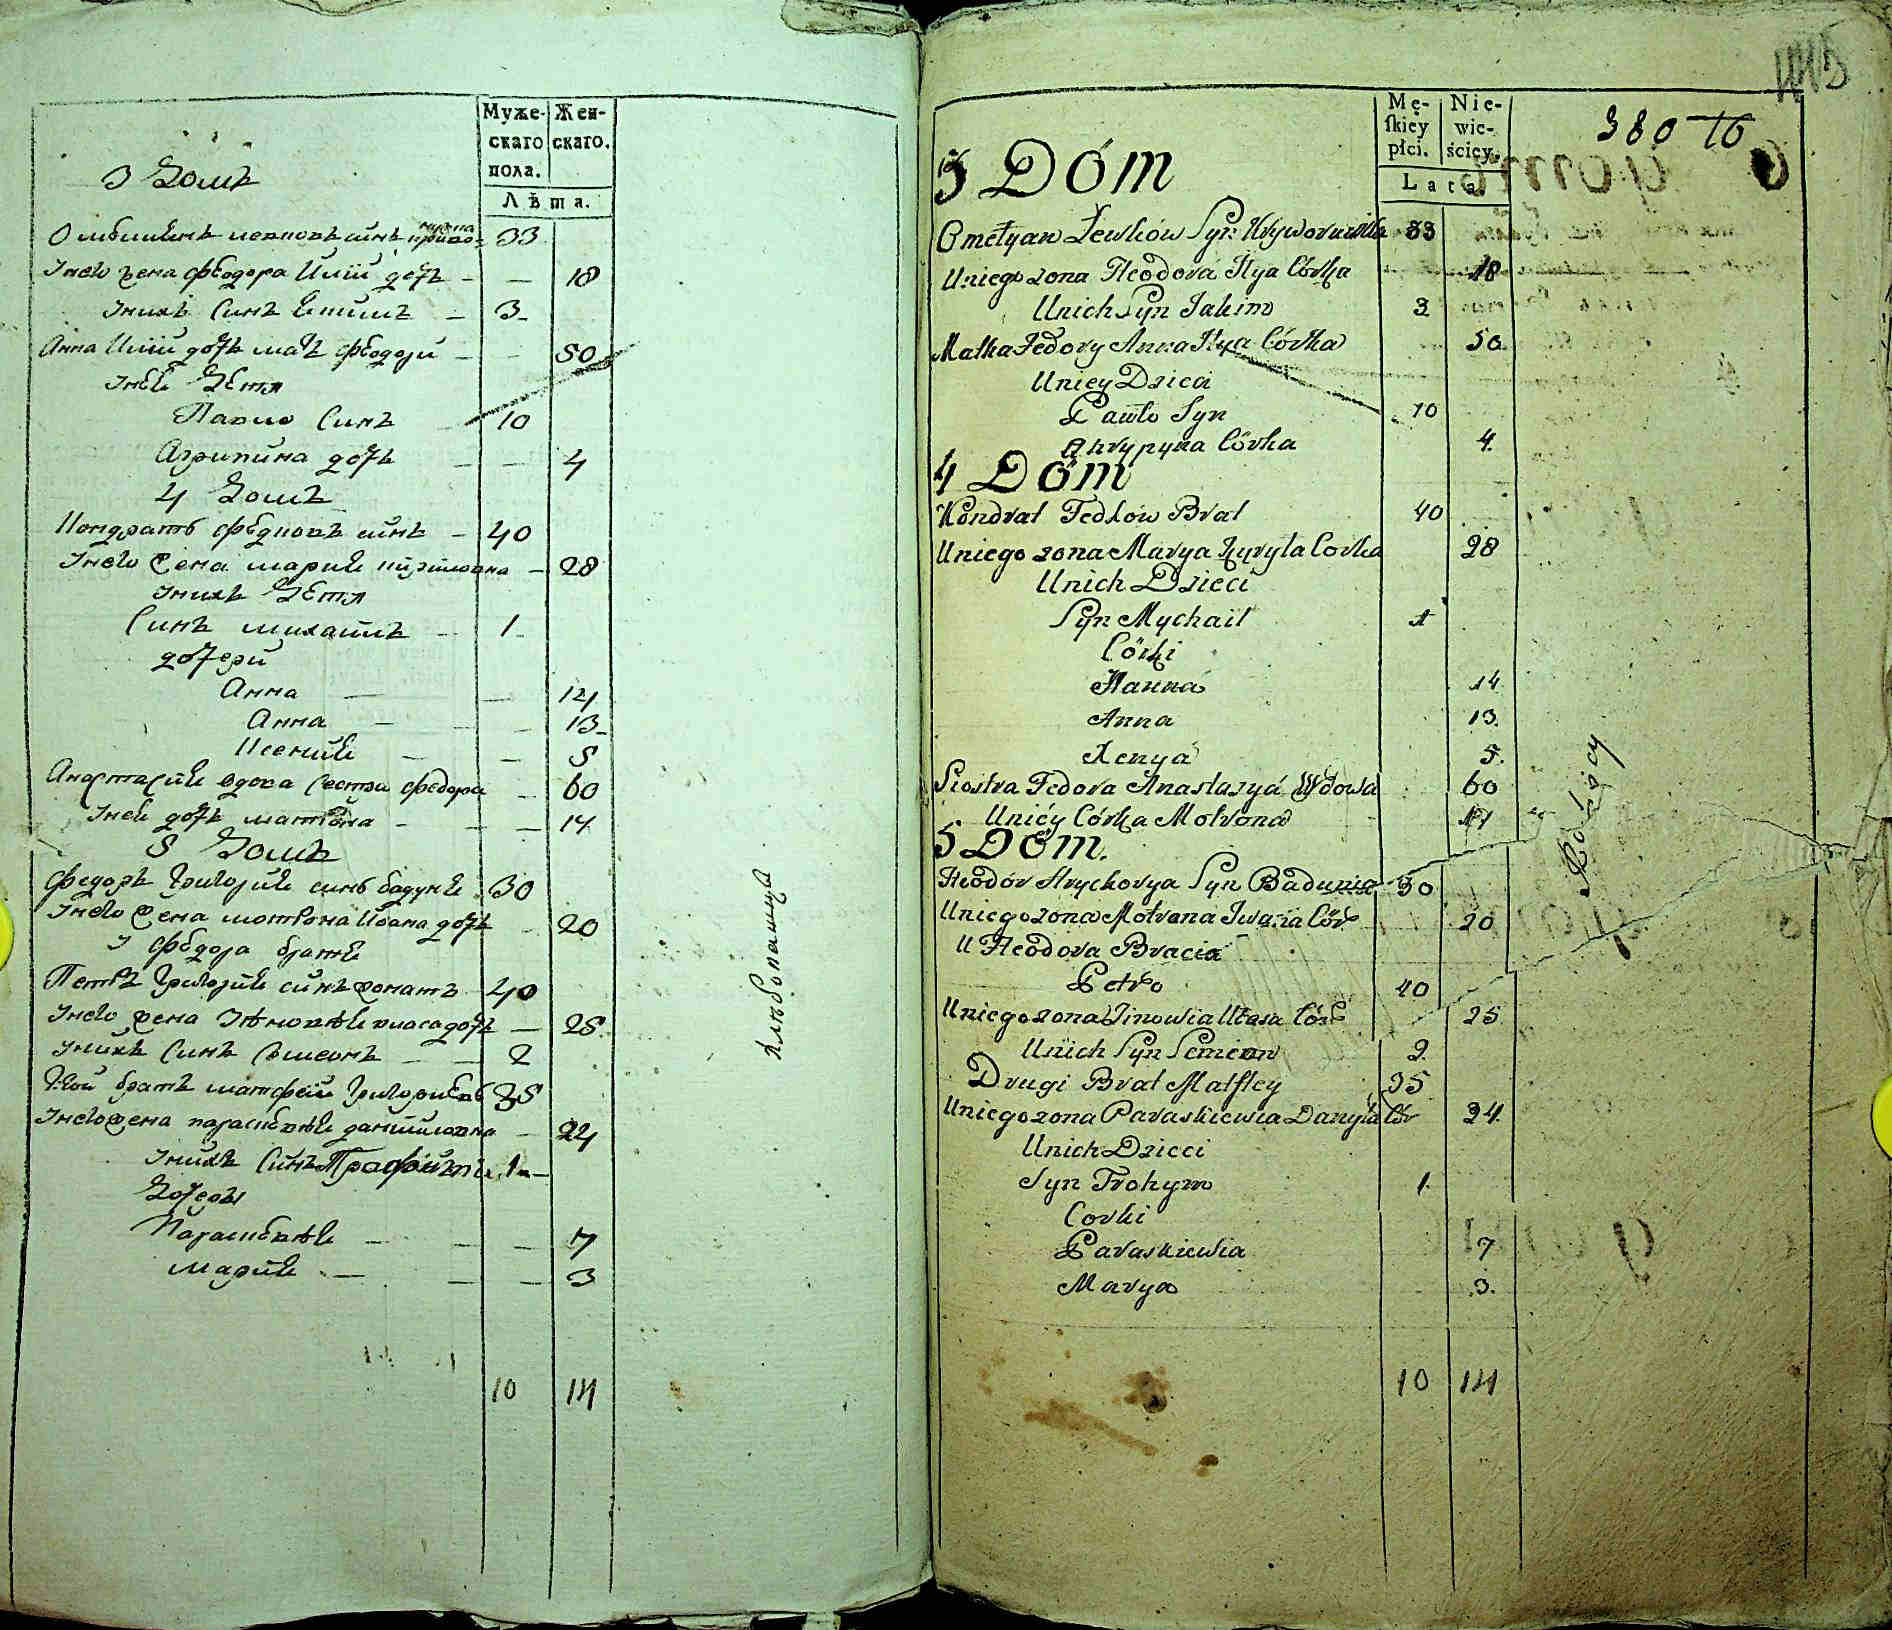 Муже-
скаго
пола.
Жен-
скаго.
Лѣта.
3 Домъ
Омелиянъ левковъ синъ 33
Унего жена Феодора Илїи дочъ — — 18
Унихъ Синъ — 3
Анна Илїи дочъ мать Феодори — — 50
Унеи Дети
Павло Синъ — 10
Агрипина дочъ — — 4
4 Домъ
Кондратъ Федковъ синъ — 40
Унего жена Мария Кириловна — 28
Унихъ Дети
Синъ михаилъ — 1
дочери
Анна — — 14
Анна — — 13
Ксения — — 5
Анастасия вдова сестра Федора — 60
Унеи дочъ матрона — — 14
5 Домъ
Федоръ Григория синъ бадуня 30
Унего жена мотрона Ивана дочъ — 20
У Федора братя
Петръ Григория синъ жонатъ 40
Унего жена Зѣновѣя власа дочъ — 25
Унихъ Синъ Симеонъ — 2
братъ матфей Григориевъ 35
Унего жена параскевѣя даниловна — 24
Унихъ Синъ 1
Дочеры
Параскевѣя — — 7
мария — — 3
10 14
хлѣбопашцы
Mę-
skiey
płci.
Nie-
wie-
ściey.
Lata.
380 16
3 Dóm
Omełyan Lewków Syn 33
Uniego zona Fteodora Ilya Córka 18
Unich Syn Jakim 3
Matka Fedory Anna Ilya Córka 50
Uniey Dzieci
Pawło Syn 10
Ahrypyna Córka 4
4 Dóm
Kondrat Fedków Brat 40
Uniego zona Marya Kyryła Corka 28
Unich Dzieci
Syn Mychaił 1
Córki
Hanna 14
Anna 13
Xenya 5
Siostra Fedora Anastazya Wdowa 60
Uniéy Córka Motrona 14
5 Dóm.
Fteodór Hrychorya Syn Badunia 30
Uniego zona Motrona Iwana Cór 20
U Fteodora Bracia
Petro 40
Uniego zona Zinowia Własa Cór 25
Unich Syn Semion 2
Drugi Brat Matftey 35
Uniego zona Paraskiewia Danyła Cór 24
Unich Dzieci
Syn Trohym 1
Corki
Paraskiewia 7
Marya 3
10 14
Rolnicy